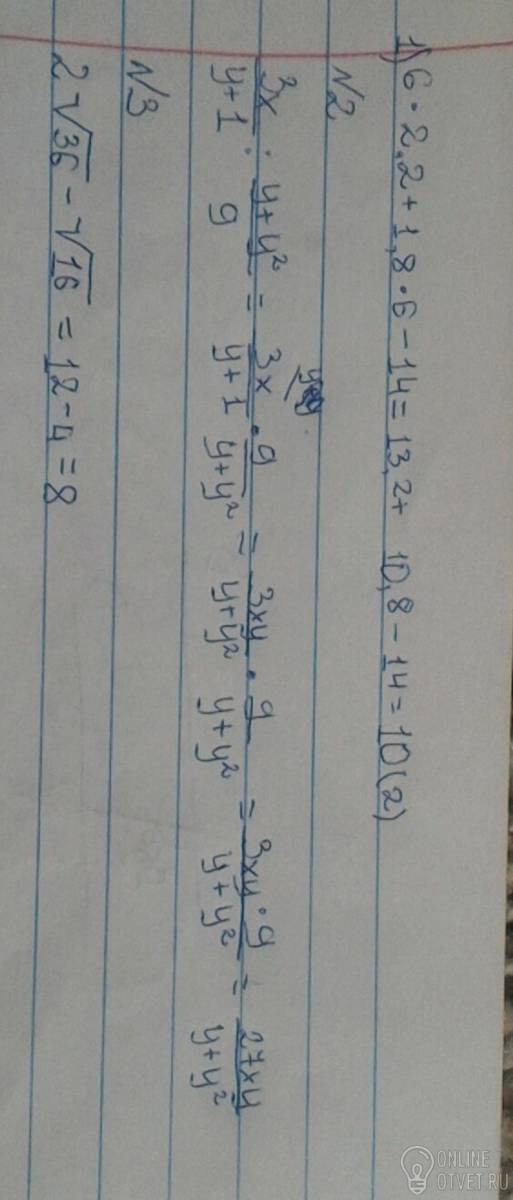 1) 6 · 2,2 + 1,8 · 6 - 14 = 13,2 + 10,8 - 14 = 10 (2)
N2
3x/y+1 : y+y²/9 = 3x/y+1 · 9/y+y² = 3xy/y+y² · 9/y+y² = 3xy·9/y+y² = 27xy/y+y²
N3
2√36 - √16 = 12 - 4 = 8
ONLINE
OTVET.RU